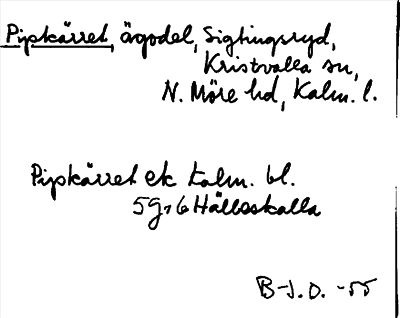 Pipkärret, ägodel, Sigtingsryd,
Kristvalla sn,
N. Möre hd, Kalm. l.
Pipkärret ek Kalm. bl.
5G, 6 Hälleskalla
B-J.O. -55